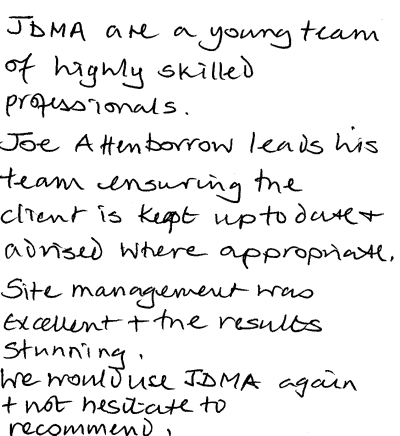 JDMA are a young team
of highly skilled
professionals.
Joe Attenborrow leads his
team ensuring the
client is kept up to date +
advised where appropriate.
Site management was
excellent + the results
stunning.
We would use JDMA again
+ not hesitate to
recommend.